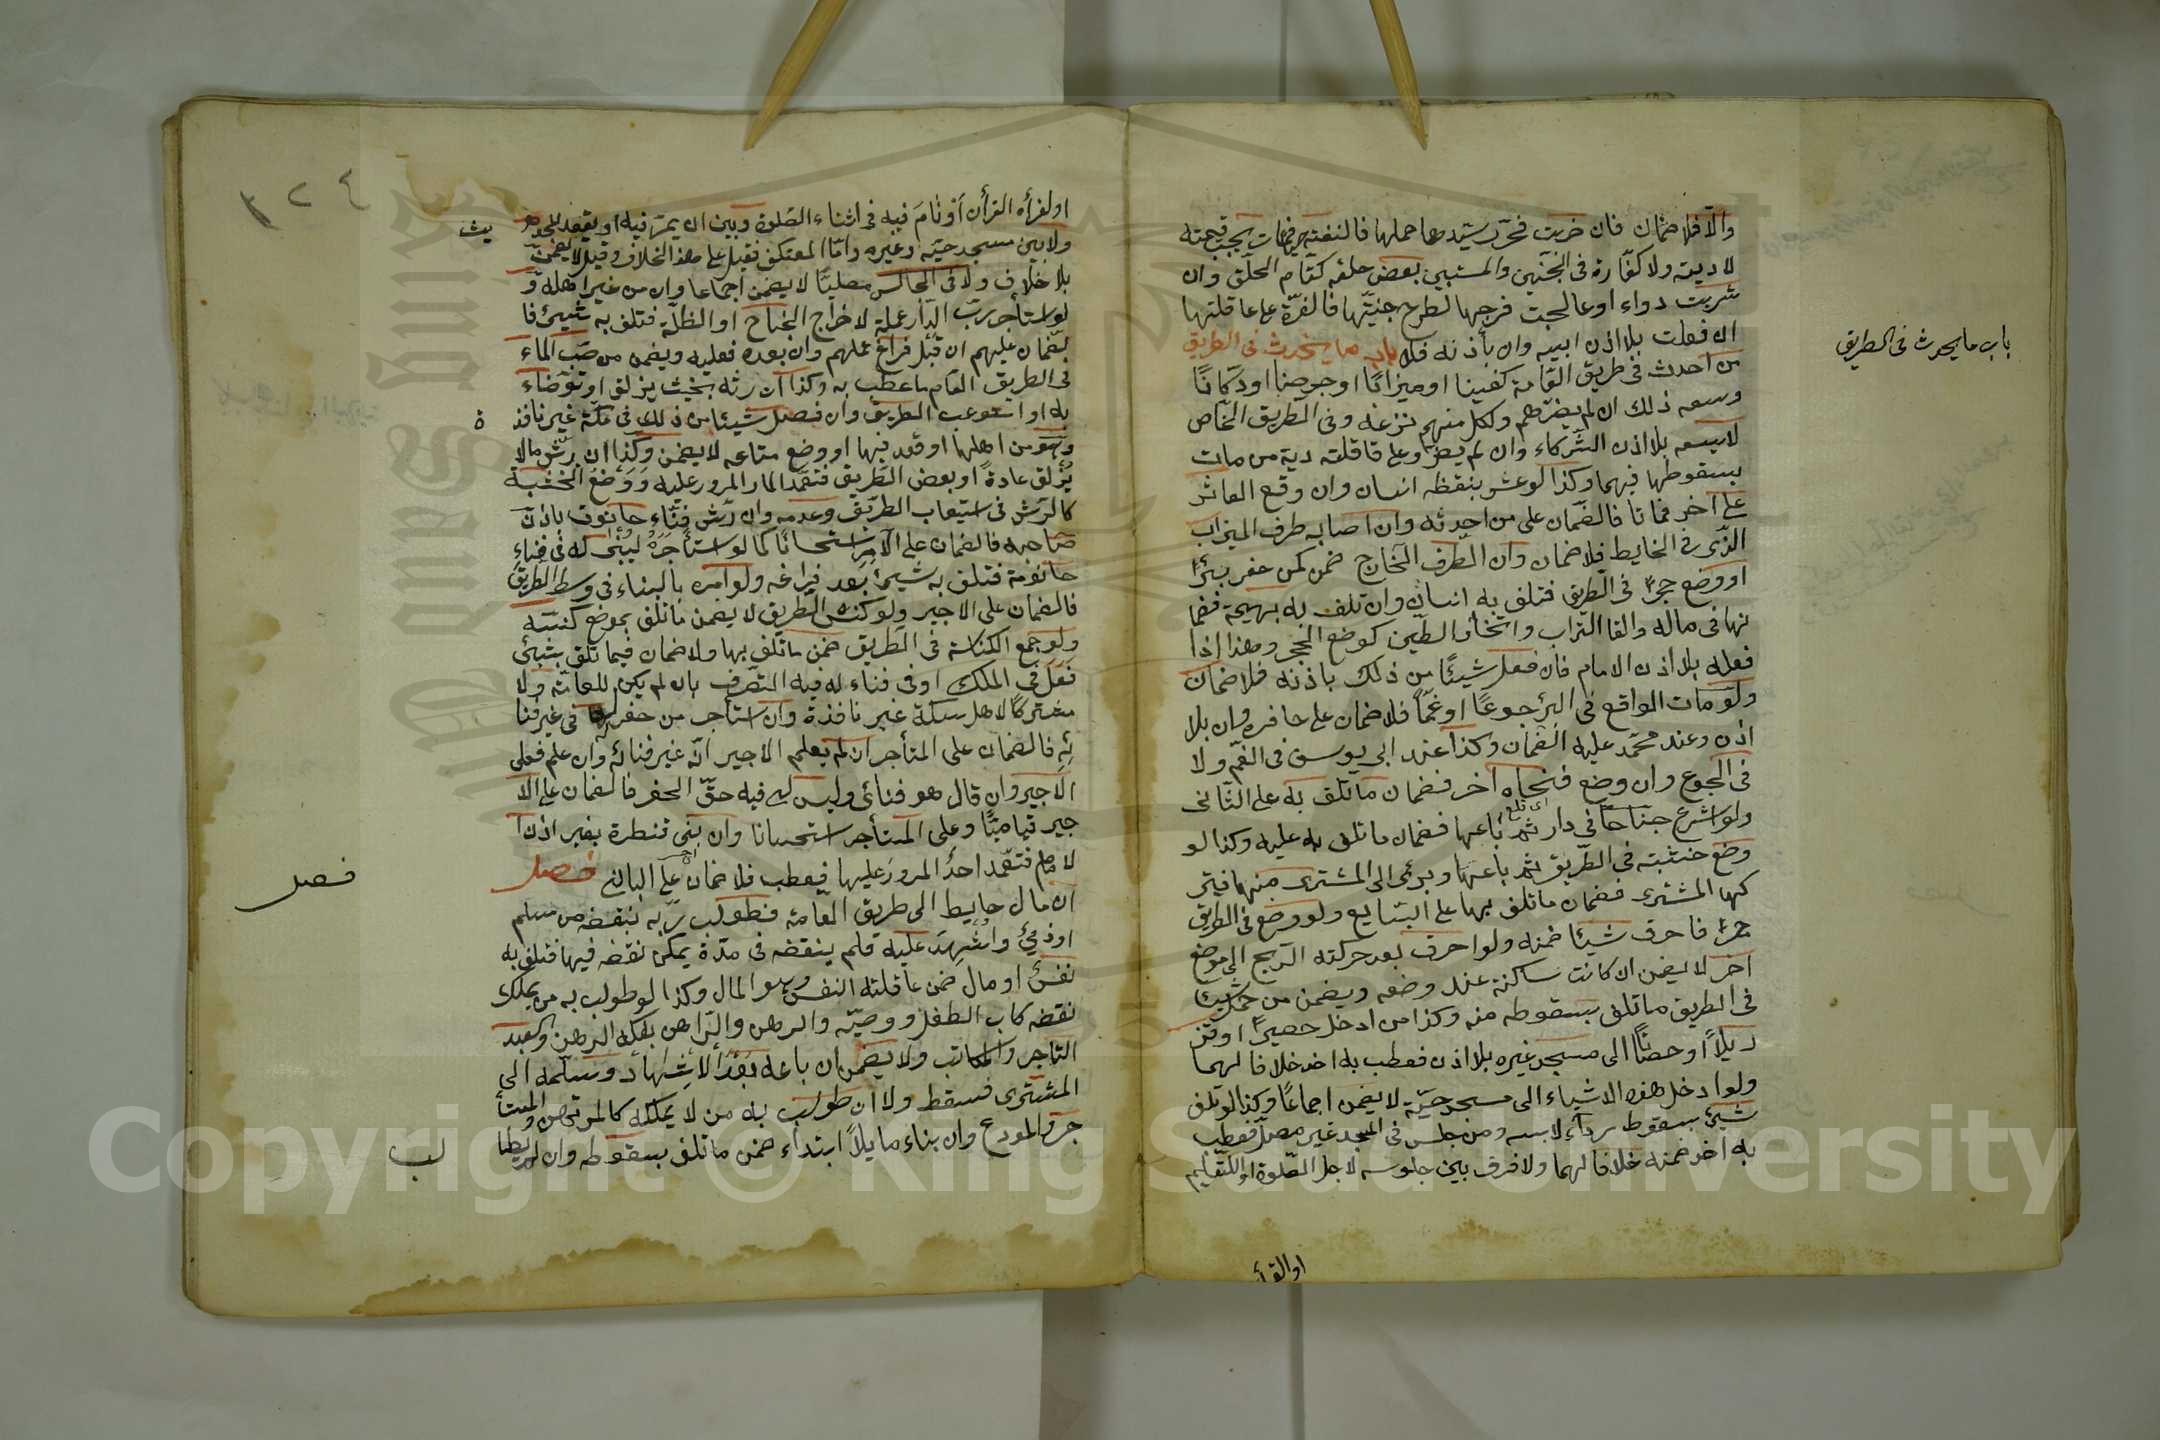 والّا فلا ضمان فان ضربت فحرّر سيّدها حملها فالقته حيا فمات يجب قيمته
لا ديته ولا كفّارة فى الجنين والمستبين بعض خلقه كتامّ الخلق وان
شربت دواء او عالجت فرجها لطرح جنينها فالغرّة على عاقلتها
ان فعلت بلا اذن ابيه وان باذنه فلا باب ما يحدث فى الطريق
من احدث فى طريق العامة كنيفا او ميزابا او جرصنا او دكانا
وسعه ذلك ان لم يضرّ بهم ولكل منهم نزعه وفى الطريق الخاص
لا يسعه بلا اذن الشركاء وان لم يضر وعلى عاقلته دية من مات
بسقوطها فيهما وكذا لو عثر بنقضه انسان وان وقع العاثر
على اخر فماتا فالضمان على من احدثه وان اصابه طرف الميزاب
الذى فى الحايط فلا ضمان وان الطرف الخارج ضمن كمن حفر بئرا
او وضع حجرا فى الطريق فتلف به انسان وان تلف به بهيمة فضما
نها فى ماله والقا التراب واتخاذ الطين كوضع الحجر وهذا اذا
فعله بلا اذن الامام فان فعل شيئا من ذلك باذنه فلا ضمان
ولو مات الواقع فى البئر جوعا او غمّا فلا ضمان على حافره وان بلا
اذن وعند محمّد عليه الضمان وكذا عند ابى يوسف فى الغم ولا
فى الجوع وان وضع فنحاه اخر فضمان ما تلف به على الثانى
ولو اشرع جناحا فى دار ثم باعها فضمان ما تلف به عليه وكذا لو
وضع خشبة فى الطريق ثم باعها وبرئ الى المشترى منها فتر
كها المشترى فضمان ما تلف بها على البايع ولو وضع فى الطريق
جمرا فاحرق شيئا ضمنه ولو احرق بعد حركته الريح الى موضع
اخر لا يضمن ان كانت ساكنة عند وضعه ويضمن من حمل شيئا
فى الطريق ما تلف بسقوطه منه وكذا من ادخل حصيرا او قن
ديلا او حصاة الى مسجد غيره بلا اذن فعطب به احد خلافا لهما
ولو ادخل هذه الاشياء الى مسجد حيّه لا يضمن اجماعا وكذا لو تلف
شيئ بسقوط رداء لابسه ومن جلس فى المسجد غير مصل فعطب
به اخر ضمنه خلافا لهما ولا فرق بين جلوسه لاجل الصلوة او للتعليم
او القرأ
باب ما يحدث فى الطريق
او لقرأة القرأن او نام فيه فى اثناء الصلوة وبين ان يمرّ فيه او يقعد للحد
يث
ولا بين مسجد حيّه وغيره وامّا المعتكف فقيل على هذا الخلاف وقيل لا يضمن
بلا خلاف ولا فى الجالس مصلّيا لا يضمن اجماعا وان من غير اهله و
لو استأجر ربّ الدار عملة لاخراج الجناح او الظلة فتلف به شيئ فا
لضمان عليهم ان قبل فراغ عملهم وان بعده فعليه ويضمن من صبّ الماء
فى الطريق العام ما عطب به وكذا ان رشه بحيث يزلق او توضاء
به او استوعب الطريق وان فعل شيئا من ذلك فى سكّة غير نافذ
ة
وهو من اهلها او قعد فيها او وضع متاعه لا يضمن وكذا ان رشّ مالا
يزلق عادة او بعض الطريق فتعمّد المار المرور عليه ووضع الخشبة
كالرش فى استيعاب الطريق وعدمه وان رش فناء حانوت باذن
صاحبه فالضمان على الآمر استحسانا كما لو استأجره ليبنى له فى فناء
حانوته فتلف به شيئ بعد فراغه ولو امره بالبناء فى وسط الطريق
فالضمان على الاجير ولو كنس الطريق لا يضمن ما تلف بموضع كنسه
ولو جمع الكناسة فى الطريق ضمن ما تلف بها ولا ضمان فيما تلف بشئ
فعل فى الملك او فى فناء له فيه التصرف بان لم يكن للعامّة ولا
مشتركا لاهل سكة غير نافذة وان استأجر من حفر له فى غير فنا
ئه فالضمان على المتأجر ان لم يعلم الاجير انّه غير فنائه وان علم فعلى
الاجير وان قال هو فنائى وليس لى فيه حقّ الحفر فالضمان على الا
جير قياسا وعلى المستأجر استحسانا وان بنى قنطرة بغير اذن ا
لامام فتعمّد احد المرور عليها فعطب فلا ضمان على البانى فصل
ان مال حايط الى طريق العامة فطولب ربه بنقضه من مسلم
او ذمّى واشهد عليه فلم ينقضه فى مدة يمكن نقضه فيها فتلف به
نفس او مال ضمن عاقلته النفس وهو المال وكذا لو طولب به من يملك
نقضه كاب الطفل ووصيّه والرهن والراهن بفكه الرهن والعبد
التاجر والمكاتب ولا يضمن ان باعه بعد الاشهاد وسلمه الى
المشترى فسقط ولا ان طولب به من لا يملكه كالمرتهن والمستأ
جر والمودع وان بناء مايلا ابتداء ضمن ما تلف بسقوطه وان لم يطا
لب
فصل
Copyright © King Saud University